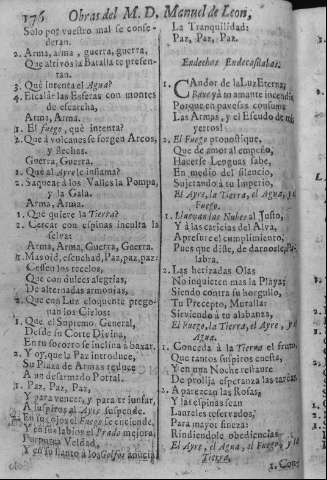 176 Obras del M. D. Manuel de Leon,
Solo por vuestro mal se conse-
deran.
2. Arma, arma, guerra, guerra,
Que altivos la Batalla te presen-
tan.
3. Què intenta el Agua?
4. Escalar las Esferas con montes
de escarcha,
Arma, Arma.
1. El fuego, què intenta?
2. Que à volcanes se forgen Arcos,
y flechas.
Guerra, Guerra.
2. Al Ayre le inflama?
2. Saquear à los Valles la Pompa,
y la Gala.
Arma, Arma.
1. Què quiere la Tierra?
2. Cercar con espinas inculta la
selva:
Arma, Arma, Guerra, Guerra.
1. Mas oid, escuchad, Paz, paz, paz:
Cessen los recelos,
Que con dulces alegrias,
De alternadas armonias,
2. Que con Luz eloquente prego-
nan los Cielos:
1. Que el Supremo General,
Desde su Corte Divina,
En tu socorro se inclina à baxar.
2. Y oy, que la Paz introduce,
Su Plaza de Armas reduce
A un desarmado Portal.
1. Paz, Paz, Paz,
Y para vencer, y para triunfar,
A suspiros al Ayre suspende.
En su ojos el Fuego se enciende,
Y en sus labios el Prado mejora,
Purpurea Veldad,
Y en su llanto à los Golfos anuncia
La Tranquilidad:
Paz, Paz, Paz.
Endechas Endecasilabas.
1. CAndor de la Luz Eterna,
Rayo ya tu amante incendio
Porque en pavesas consuma
Las Armas, y el Escudo de mis
yerros!
2. El Fuego pronostique,
Que de amor al empeño,
Hacerse Lenguas sabe,
En medio del silencio,
Sujetando à tu Imperio,
El Ayre, la Tierra, el Agua, y el
Fuego.
1. Lluevan las Nubes al Justo,
Y à las caricias del Alva,
Apresure el cumplimiento,
Pues que diste, de darnosle, Pa-
labra.
2. Las herizadas Olas
No inquieten mas la Playa;
Siendo contra su horgullo,
Tu Precepto, Muralla:
Sirviendo à tu alabanza,
El Fuego, la Tierra, el Ayre, y el
Agua.
1. Conceda à la Tierra el fruto,
Que tantos suspiros cuesta,
Y en una Noche restaure
De prolija esperanza las tardes.
2. A parezcan las Rosas,
Y las espinas sean
Laureles reservados,
Para mayor fineza:
Rindiendole obediencias
El Ayre, el Agua, el Fuego, y la
Tierra.
1. Con-